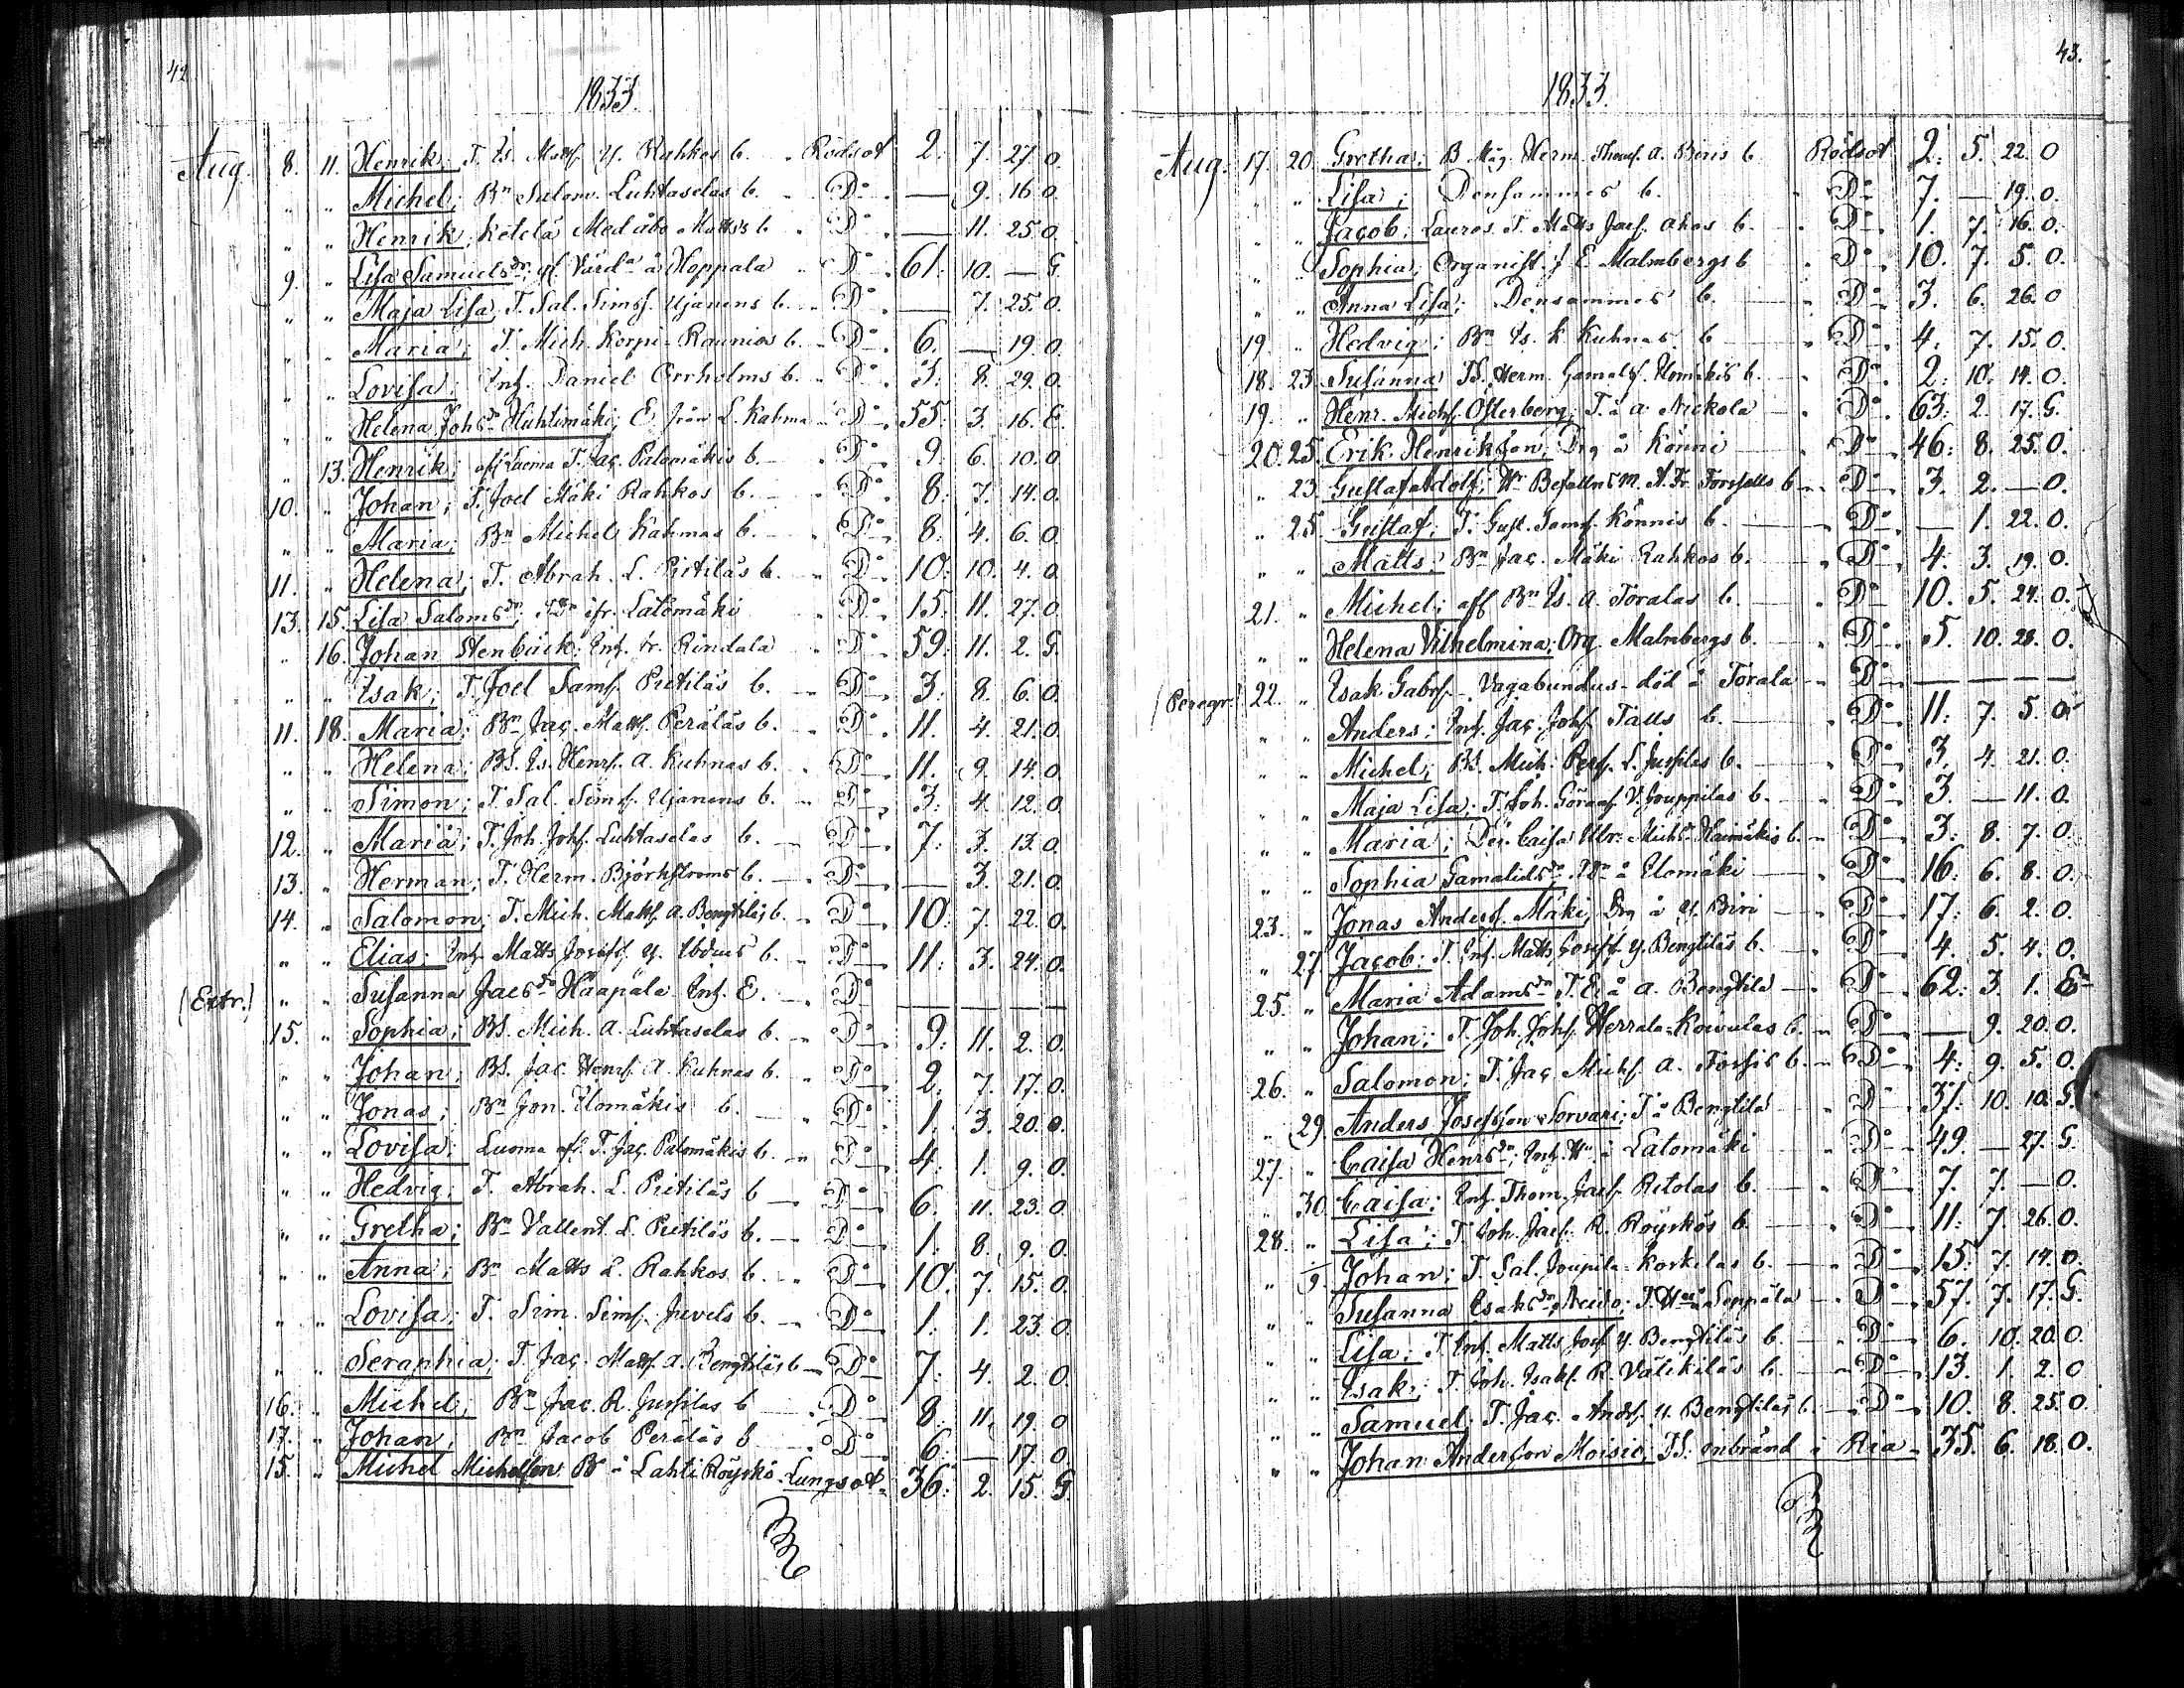 42
1833.
Aug. 8. 11. Henrik; T. Is. Matts. Y. Rahkos b. Rödsot 2. 7. 27. O.
" " Michel; Bn Salom. Luhtaselas b. Do — 9. 16. O.
" " Henrik; Ketelä Medåbo Matts's b. Do — 11. 25. O.
9. " Lisa Samuelsdr; å Hoppala Do 61. 10. — G.
" " Maja Lisa; T. Sal. Simss. Ujanens b. Do — 7. 25. O.
" " Maria; T. Mich. Korpi-Raunios b. Do 6. — 19. O.
" " Lovisa; Inh. Daniel Orrholms b. Do 3. 8. 29. O.
" " Helena Johsdr Huhtimäki; E. från L. Kahma Do 55. 3. 16. E.
" 13. Henrik; afl. Luoma T. Jac. Palomäkis b. Do 9. 6. 10. O.
10. " Johan; T. Joel Mäki Rahkos b. Do 8. 7. 14. O.
" " Maria; Bn Michel Kahmas b. Do 8. 4. 6. O.
11. " Helena; T. Abrah. L. Pietiläs b. Do 10. 10. 4. O.
13. 15. Lisa Salomsdr; ifr. Latomäki Do 15. 11. 27. O.
" 16. Johan Stenbäck; Inh. fr. Rindala Do 59. 11. 2. G.
" " Isak; T. Joel Sams. Pietiläs b. Do 3. 8. 6. O.
11. 18. Maria; Bn Jac. Matts. Peräläs b. Do 11. 4. 21. O.
" " Helena; BS. Is. Henrs. A. Kuhnas b. Do 11. 9. 14. O.
" " Simon; T. Sal. Simss. Ujanens b. Do 3. 4. 12. O.
12. " Maria; T. Joh. Johs. Luhtaselas b. Do 7. 3. 13. O.
13. " Herman; T. Herm. Björkströms b. Do — 3. 21. O.
14. " Salomon; T. Mich. Matts. A. Bengtiläs b. Do 10. 7. 22. O.
" " Elias; Inh. Matts Josefs. Y. b. Do 11. 3. 24. O.
(Extr.) " " Susanna Jacsdr Haapala Inh. E. Do — — —
15. " Sophia; BS. Mich. A. Luhtaselas b. Do 9. 11. 2. O.
" " Johan; BS. Jac. Henrs. A. Kuhnas b. Do 2. 7. 17. O.
" " Jonas; Bn Jon. Ulomäkis b. Do 1. 3. 20. O.
" " Lovisa; Luoma afl. T. Jac. Palomäkis b. Do 4. 1. 9. O.
" " Hedvig; T. Abrah. L. Pietiläs b. Do 6. 11. 23. O.
" " Gretha; Bn Vallent. L. Pietiläs b. Do 1. 8. 9. O.
" " Anna; Bn Matts L. Rahkos b. Do 10. 7. 15. O.
" " Lovisa; T. Sim. Simss. Juvels b. Do 1. 1. 23. O.
" " Seraphia; T. Jac. Matts. A. Bengtiläs b. Do 7. 4. 2. O.
16. " Michel; Bn Jac. R. Jussilas b. Do 8. 11. 19. O.
17. " Johan; Bn Jacob Peräläs b. Do 6. — 17. O.
15. " Michel Michelson B. å Lahti Röyskö Lungsot 36. 2. 15. G.
43.
1833.
Aug. 17. 20. Gretha; B. Mäg. Herm. Thoms. A. Biris b. Rödsot 2. 5. 22. O
" " Lisa; Densammes b. Do 7. — 19. O.
" " Jacob; Lauros T. Matts Jacs. Ahos b. Do 1. 7. 16. O.
" " Sophia; Organist. J. E. Malmbergs b. Do 10. 7. 5. O.
" " Anna Lisa; Densammes b. Do 3. 6. 26. O
19. " Hedvig; Bn Is. K. Kuhnas b. Do 4. 7. 15. O.
18. 23. Susanna TS. Herm. Gamals. Ulomäkis b. Do 2. 10. 14. O.
19. " Henr. Michs. Österberg; T. å A. Nickola Do 63. 2. 17. G.
20. 25. Erik Henrikson; Drg å Könni Do 46. 8. 25. O.
" 23. Gustaf Adolf; Hr Befallnsm. A. Fr. Forssells b. Do 3. 2. — O.
" 25. Gustaf; T. Gust. Könnis b. Do — 1. 22. O.
" " Matts; Bn Jac. Mäki Rahkos b. Do 4. 3. 19. O.
21. " Michel; afl. Bn Is. A. Toralas b. Do 10. 5. 24. O.
" " Helena Vilhelmina; Org. Malmbergs b. Do 5. 10. 28. O.
(Peregr.) 22. " Isak Gabrs. Vagabundus död å Torala Do — — —
" " Anders; Inh. Jac. Johs. Talls b. Do 11. 7. 5. O.
" " Michel; BS. Mich. L. Jussilas b. Do 3. 4. 21. O.
" " Maja Lisa; T. Joh. Görans. Y. Jouppilas b. Do 3. — 11. O.
" " Maria; Caisa Ulr. Michsdr Haimäkis b. Do 3. 8. 7. O.
" " Sophia Gamalielsdr å Ulomäki Do 16. 6. 8. O.
23. " Jonas Anderss. Mäki; Drg å Y. Biri Do 17. 6. 2. O.
" 27. Jacob; T. Inh. Matts Josefs. Y. Bengtiläs b. Do 4. 5. 4. O.
25. " Maria Adamsdr T. E. å A. Bengtilä Do 62. 3. 1. E
" " Johan; T. Joh. Johs. Herrala-Koivulas b. Do — 9. 20. O.
26. " Salomon; T. Jac. Michs. A. b. Do 4. 9. 5. O.
" 29. Anders Josefsson Sorvari; T. å Bengtilä Do 37. 10. 10. G.
27. " Caisa Henrsdr; Inh. Hu å Latomäki Do 49. — 27. G.
" 30. Caisa; Inh. Thom. Jacs. Ritolas b. Do 7. 7. — O.
28. " Lisa; T. Joh. Jacs. R. Röyskös b. Do 11. 7. 26. O.
" 1/9. Johan; T. Sal. Joupila-Korkilas b. Do 15. 7. 14. O.
" " Susanna Isaksdr; T. Hu å Seppälä Do 57. 7. 17. G.
" " Lisa; T. Inh. Matts Josefs. Y. Bengtiläs b. Do 6. 10. 20. O.
" " Isak; T. Joh. Isaks. R. Välikiläs b. Do 13. 1. 2. O
" " Samuel; T. Jac. Andrs. Y. Bengtiläs b. Do 10. 8. 25. O.
" " Johan Anderson Moisio, TS. inbränd i Ria 35. 6. 18. O.